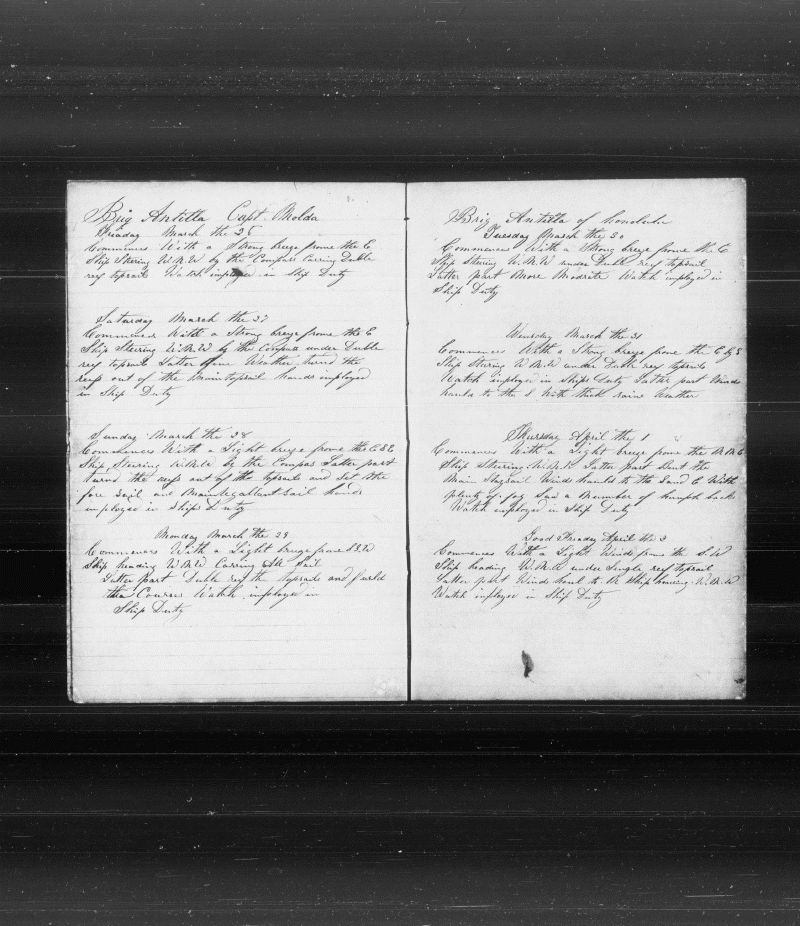 Brig Antilla Capt. Molda
Friaday March the 26
Commences With a Strong brege frome the E
Ship Stering W.N.W by the Compass Carring Duble
reef topsail Watch inployed in Ship Duty
Saturday March the 27
Commences With a Strong breye frome the E
Ship Sterring W.N.W by the Compass under Duble
reef topsails Latter fine Weather turnd the
reefs out of the Maintopsail hands inployed
in Ship Duty
Sunday March the 28
Commences With a Light breye frome the E S E
Ship Sterring W.N.W by the Compas Latter part
turnd the reefs out of the topsails and Set the
fore Sail and Maintgallant Sail hands
inployed in Ships Duty
Monday March the 29
Commences With a Light breye frome
Ship heading W.N.W Carring All Sail
Latter part Duble reef the topsails and furld
the Courses Watch inployed in
Ship Duty
Brig Antilla of honolulu
Tuesday March the 30
Commences With a Strong breye frome the E
Ship Stering W.N.W under Duble reef topsail
Latter part More Modrite Watch inployed in
Ship Duty
Wensday March the 31
Commences With a Strong breye frome the E by S
Ship Staring W.N.W under Duble reef topsails
Watch inployed in Ships Duty Latter part Winds
hauld to the S With thick raine Weather
Thursday April the 1
Commences With a Light breye from the N.N.E
Ship Sterring W.N.W Latter part Sent the
Main Staysail Winds hauld to the S and E With
plenty of fog Saw a Number of humph backs
Watch employed in Ship Duty
Good Friaday April the 2
Commences With a Light Winds from the S.W
Ship heading W.N.W under Single reef topsail
Latter part Winds haul to N Ship heading W.N.W
Watch inployed in Ship Duty